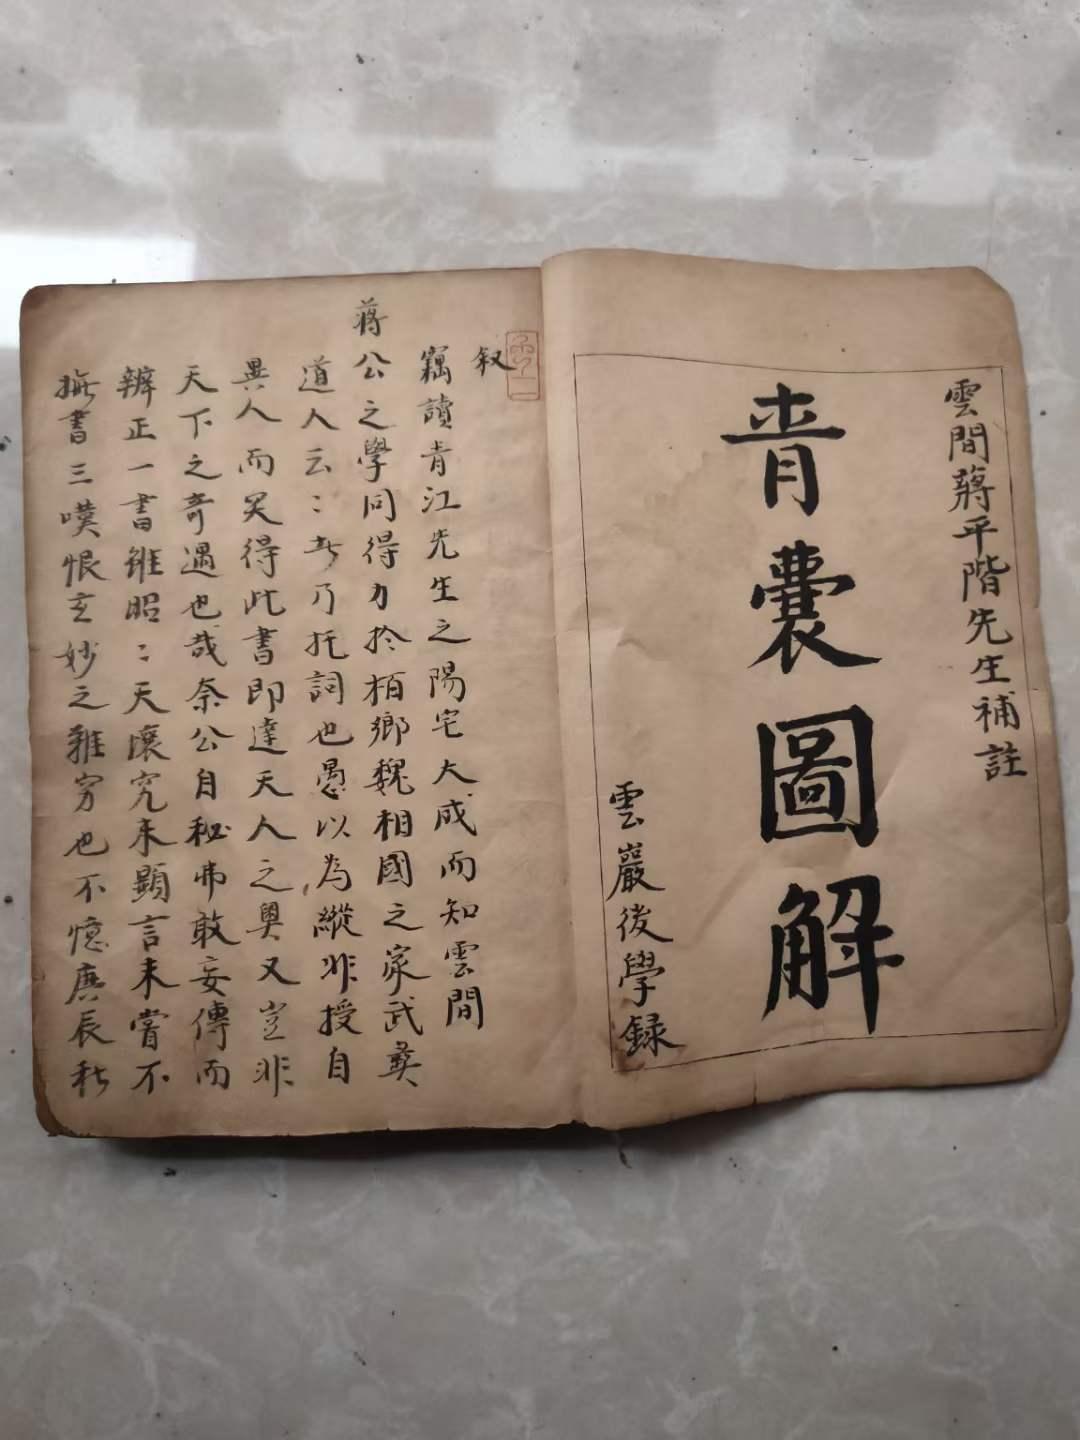 雲間蔣平階先生補註
青囊圖解
雲巖後學録
叙
竊讀青江先生之陽宅大成而知雲間
蔣公之學同得力於栢鄉魏相國之家武彛
道人云〻者乃托詞也愚以為縱非授自
異人而旣得此書即達天人之奧又豈非
天下之奇遇也哉奈公自秘弗敢妄傳而
辨正一書雖昭〻天壤究未顯言未嘗不
撫書三嘆恨玄妙之難窮也不憶庚辰秋